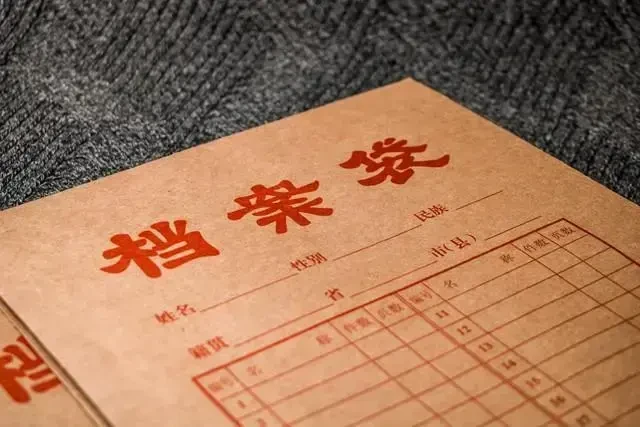 档案袋
姓名 性别 民族
籍贯 省 市(县)
编号 名 称 件数 页数 编号 名 称 件数 页数
1 11
2 12
13
14
15
16
17
档